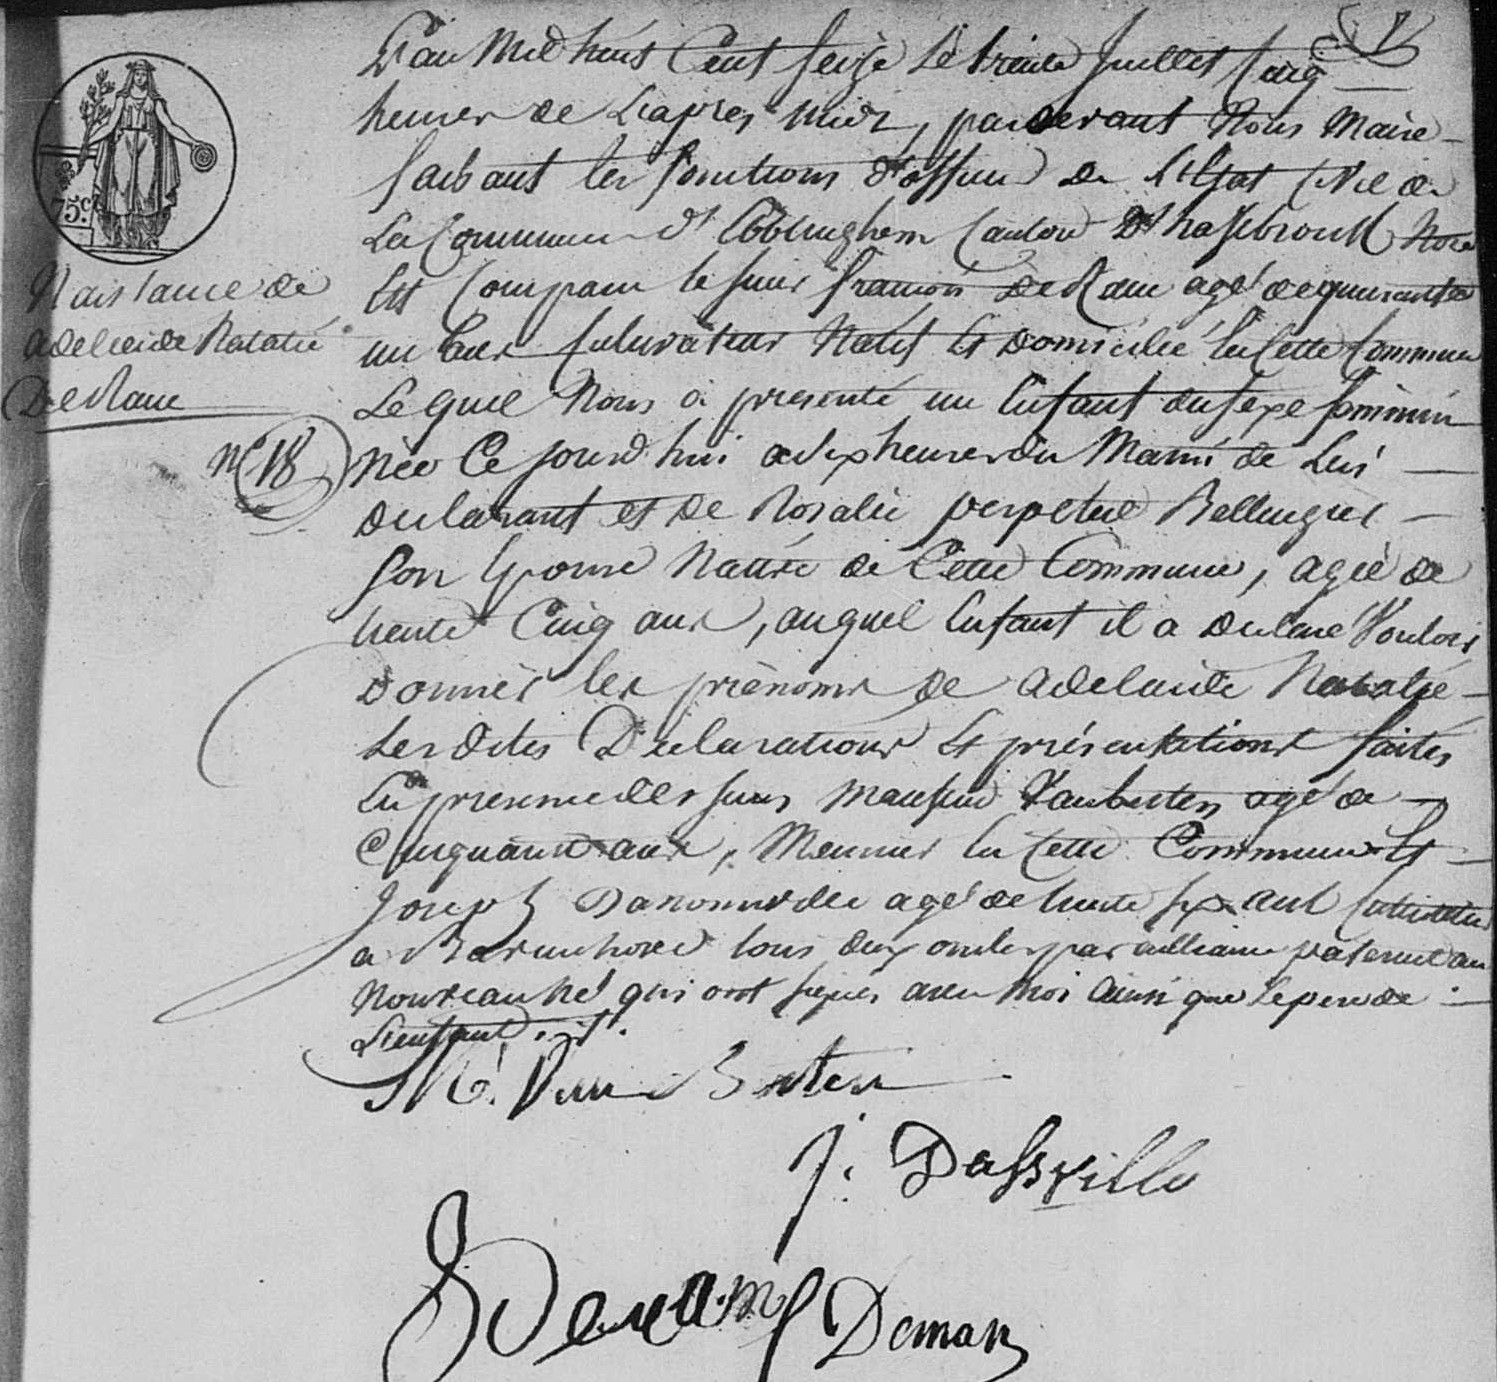 L'an Mil huit Cent Seize Le trente Juillet Cinq
heures de L'apres midi, pardevant Nous Maire
faisant les fonctions d'officier de L'Etat Civil de
La Commune d'Ebblinghem Canton D'hasebrouck Nord
Est Comparu le sieur François DeRam agé de quarante
un ans Cultivateur Natif Et Domicilié En Cette Commune
Lequel Nous a presenté un Enfant du sexe féminin
Née Ce jourd'hui a six heures du Matin de Lui
declarant et de Rosalie perpetue Bellengier
Son Epouse Native de Cette Commune, agée de
trente Cinq ans, auquel Enfant il a declaré Vouloir
donner les prénoms de Adelaide Natalie
Lesdites Declarations Et présentations faites
En presence des sieurs Vanbesten agé de
Cinquante ans, Meunier En Cette Commune Et
Joseph agé de trente six ans Cultivateur
a tous deux oncles par alliance paternel au
Nouveau Né qui ont signés avec Moi Ainsi que Le pere de
L'enfant
Naissance de
Adelaide Natalie
DeRam
N° 18
75 c
M. Van Besten
J. Dassville
Deram
Deman